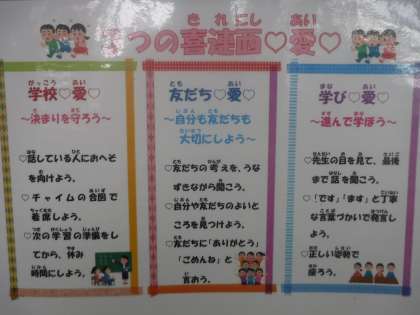 3つの喜連西♡愛♡
学校♡愛♡
～決まりを守ろう～
♡話している人におへそ
を向けよう。
♡チャイムの合図で
着席しよう。
♡次の学習の準備をし
てから、休み
時間にしよう。
友だち♡愛♡
～自分も友だちも
大切にしよう～
♡友だちの考えを、うな
ずきながら聞こう。
♡自分や友だちのよいと
ころを見つけよう。
♡友だちに「ありがとう」
「ごめんね」と
言おう。
学び♡愛♡
～進んで学ぼう～
♡先生の目を見て、最後
まで話を聞こう。
♡「です」「ます」と丁寧
な言葉づかいで発言し
よう。
♡正しい姿勢で
座ろう。